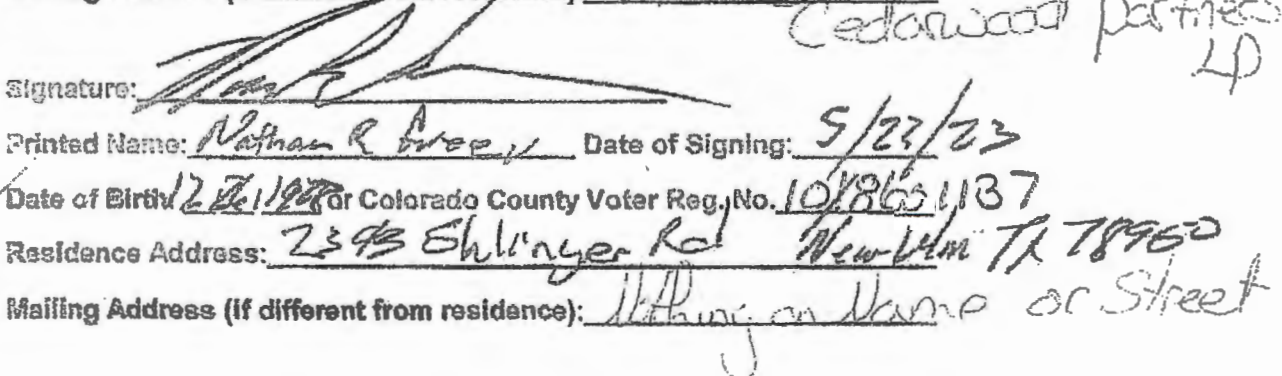 Cedarwood partners
LP
Signature:
Printed Name: Nathan R Green Date of Signing: 5/23/23
Date of Birth or Colorado County Voter Reg. No.
Residence Address: Ehlinger Rd New Ulm TX 78950
Mailing Address (if different from residence): Nothing on Name or Street